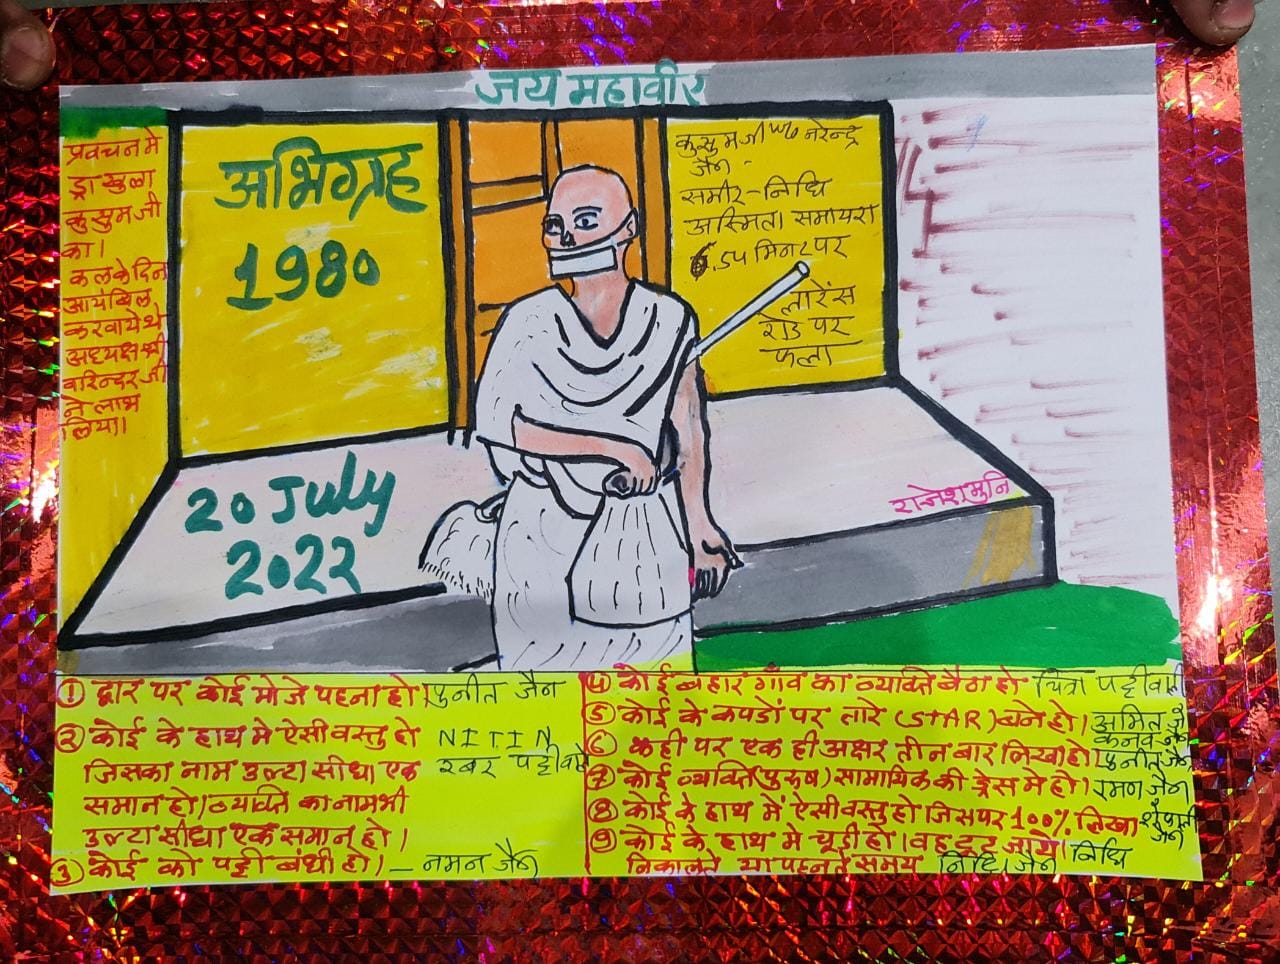 जय महावीर
प्रवचन मे
ड्रा खुला
कुसुम जी
का।
कल के दिन
आयंबिल
करवाये थे
अध्यक्ष श्री
वारिन्दर जी
ने लाभ
लिया।
अभिग्रह
1980
कुसुम जी w/o नरेन्द्र
जैन
समीर-निधि
अस्मिता समायरा
6.54 मिनट पर
लारेंस
रोड पर
फला
20 July
2022
राजेश मुनि
① द्वार पर कोई मोजे पहना हो। पुनीत जैन
② कोई के हाथ मे ऐसी वस्तु हो NITIN
जिसका नाम उल्टा सीधा एक रबर पट्टीवाले
समान हो। व्यक्ति का नाम भी
उल्टा सीधा एक समान हो।
③ कोई को पट्टी बंधी हो। - नमन जैन
④ कोई बहार गाँव का व्यक्ति बैठा हो चित्रा पट्टीवाले
⑤ कोई के कपडों पर तारे (STAR) बने हो। अमित जै
कनव जैन
⑥ कही पर एक ही अक्षर तीन बार लिखा हो। पुनीत जैन
⑦ कोई व्यक्ति (पुरुष) सामायिक की ड्रेस मे हो। रमण जैन
⑧ कोई के हाथ में ऐसी वस्तु हो जिस पर 100% लिखा
जैन
⑨ कोई के हाथ मे चूड़ी हो। वह टूट जाये। निधि
निकालते या पहनते समय निधि जैन